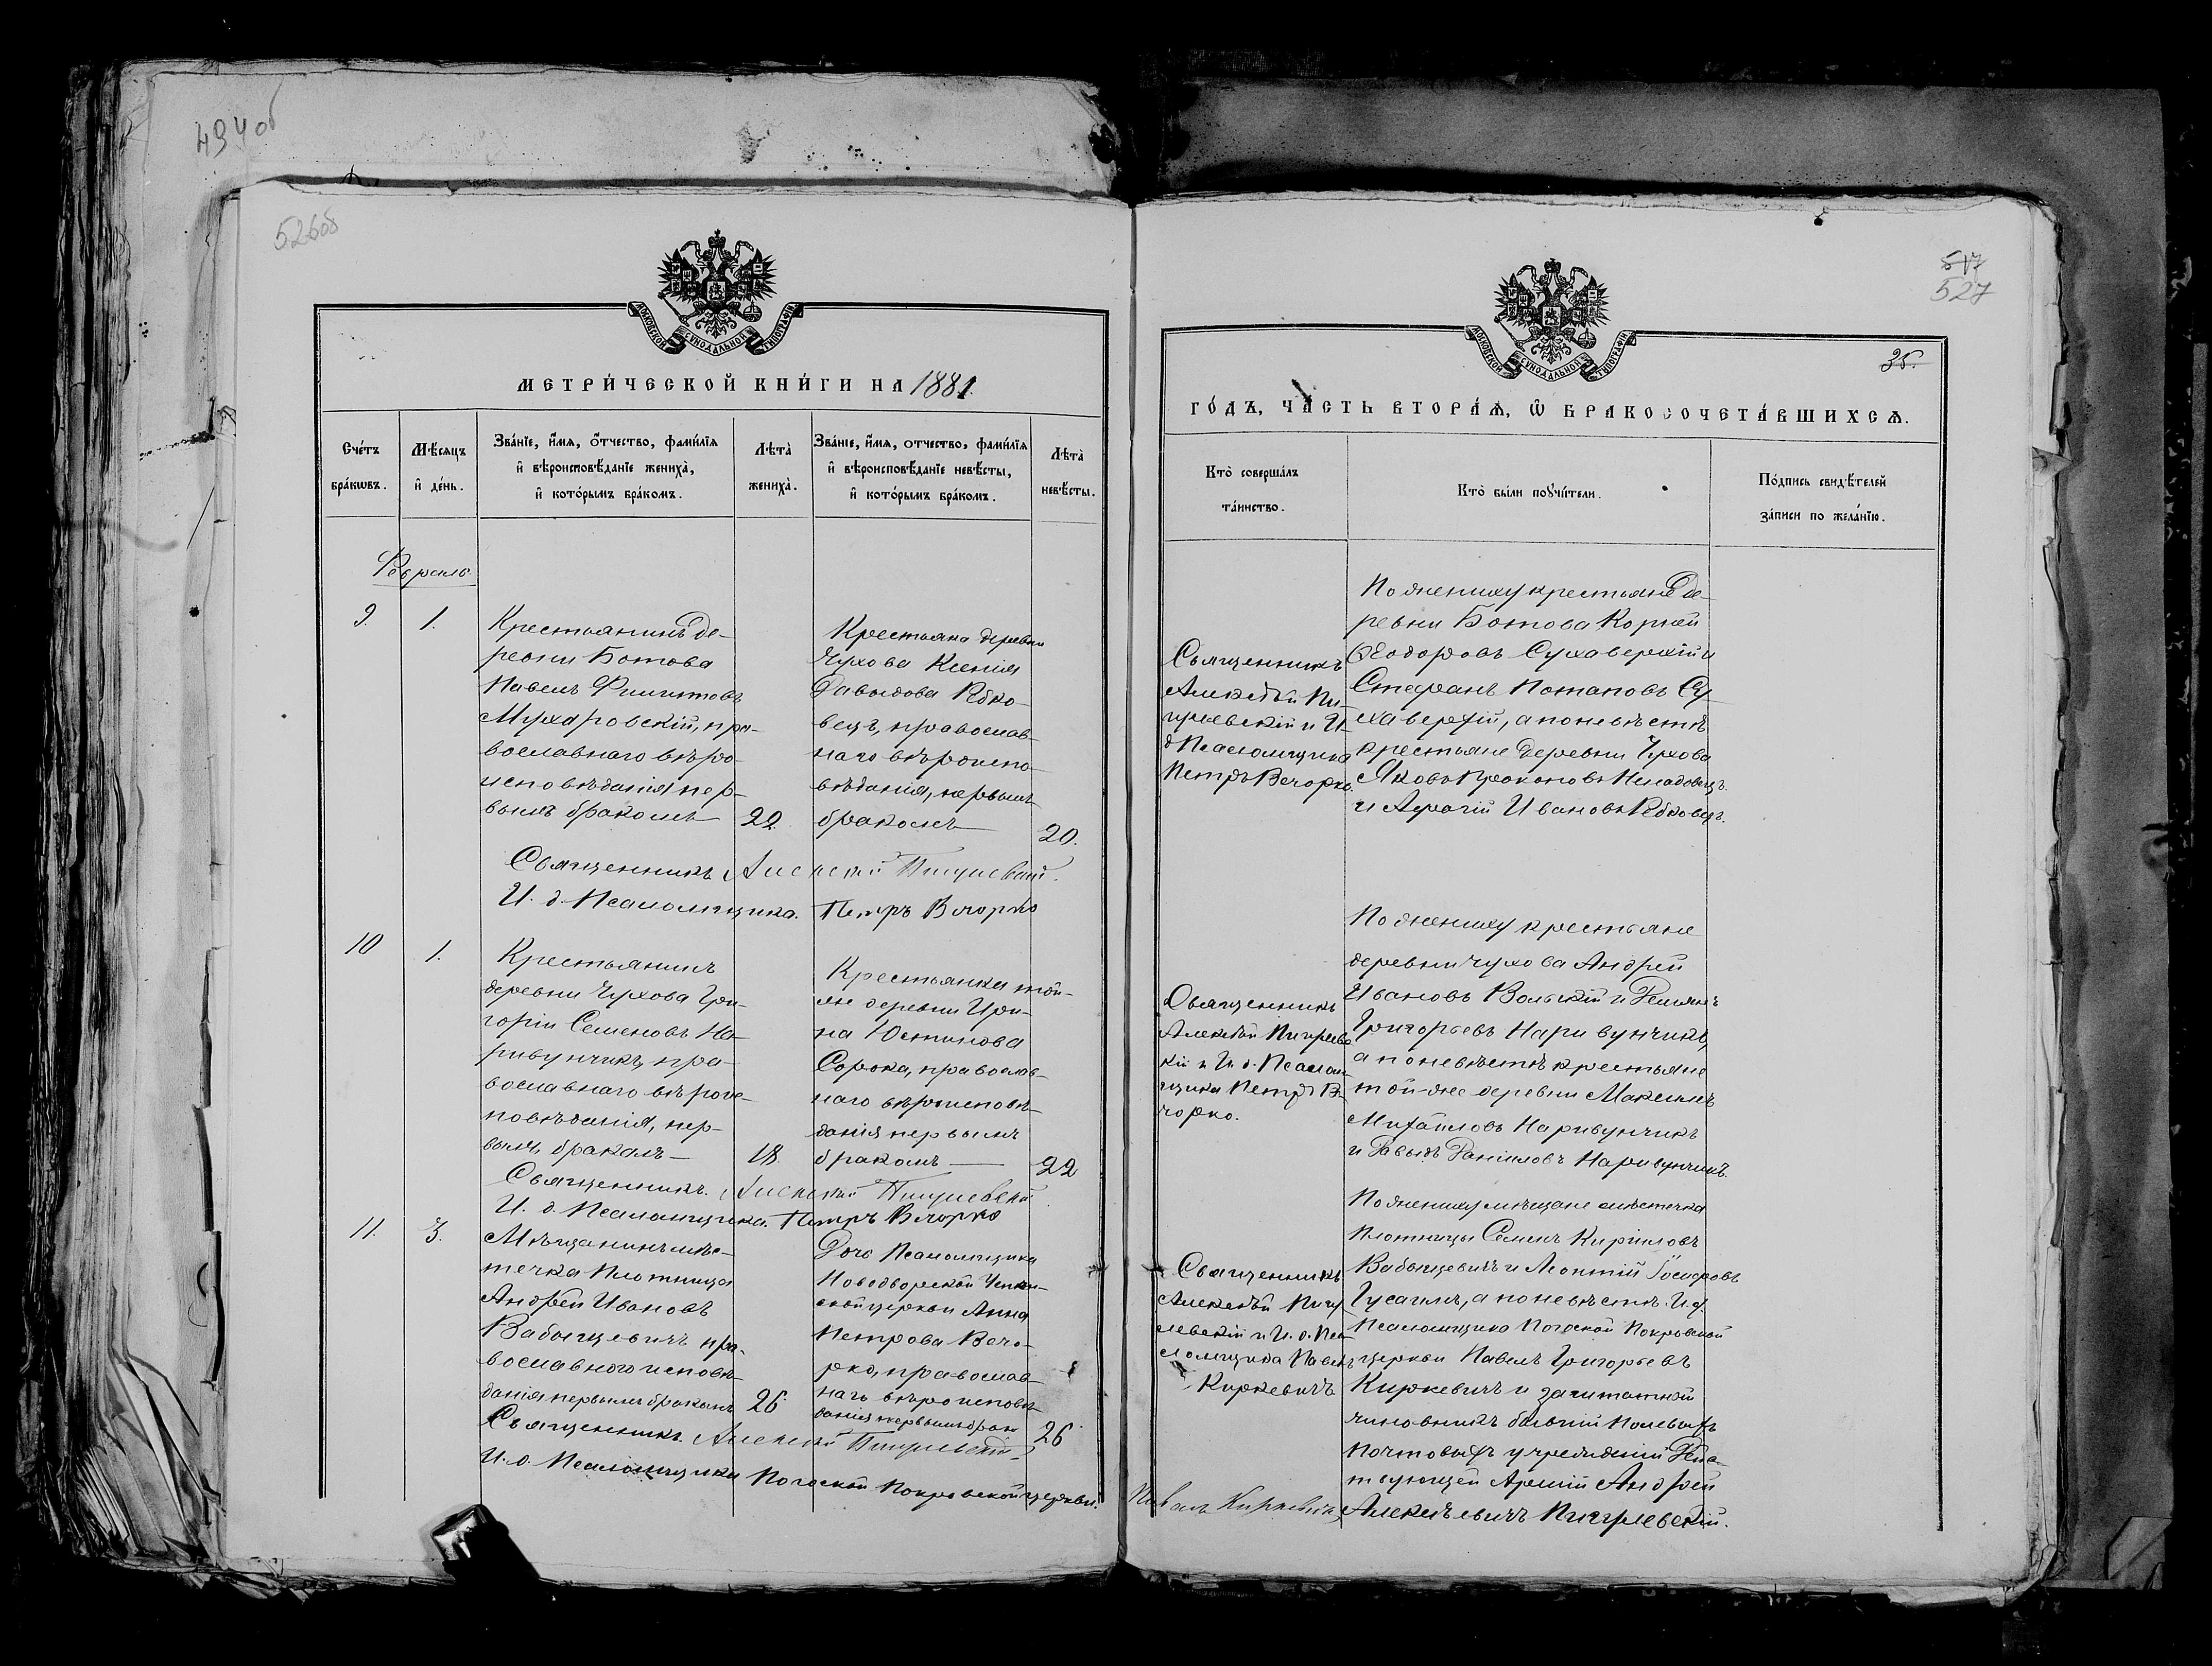 494об
526об
МОСКОВСКОЙ СѴНОДАЛЬНОЙ ТИПОГРАФІИ
МЕТРИ́ЧЕСКОЙ КНИ́ГИ НА 1881.
Сче́тъ бра́кωвъ.
Мѣ́сяцъ и҆ де́нь.
Зва́нїе, и҆́мѧ, о҆́тчество, фами́лїѧ
и҆ вѣроисповѣ́данїе жениха̀,
и҆ кото́рымъ бра́комъ.
Лѣта̀ жениха̀.
Зва́нїе, и҆́мѧ, отчество, фами́лїѧ
и҆ вѣроисповѣ́данїе невѣ́сты,
и҆ кото́рымъ бра́комъ.
Лѣта̀ невѣ́сты.
Февраль
9. 1.
Крестьянинъ де-
ревни Ботова
Павелъ Филитовъ
Мухаровскій, пра-
вославнаго вѣро-
исповѣданія пер-
вымъ бракомъ 22.
Крестьяка деревни
Чухова Ксенія
Давыдова Рѣбко-
вецъ, православ-
наго вѣроиспо-
вѣданія, первымъ
бракомъ 20.
Священникъ Алексѣй Пигулевскій.
И. д. Псаломщика. Петръ Вечорко
10 1.
Крестьянинъ
деревни Чухова Гри-
горій Семеновъ На-
ривунчикъ, пра-
вославнаго вѣроис-
повѣданія, пер-
вымъ бракомъ 18.
Крестьянка той-
же деревни Ири-
на Юстинова
Сорока, православ-
наго вѣроисповѣ-
данія первымъ
бракомъ 22
Священникъ. Алексѣй Пигулевскій
И. д. Псаломщика. Петръ Вечорко
11. 3.
Мѣщанинъ мѣс-
течка Плотница
Андрей Ивановъ
Бабыцевичъ пра-
вославного исповѣ-
данія первымъ бракомъ 26
Дочь Псаломщика
Новодворской Успен-
ской церкви Анна
Петрова Вечо-
рко, православ-
наго вѣроисповѣ-
данія первымъ брак 26
Священникъ. Алексѣй Пигулевскій
И. д. Псаломщика Погоской Покровской церкви.
517
527
35.
МОСКОВСКОЙ СѴНОДАЛЬНОЙ ТИПОГРАФІИ
ГО́ДЪ, ЧА́СТЬ ВТОРА́Ѧ, Ѽ БРАКОСОЧЕТА́ВШИХСѦ.
Кто̀ соверша́лъ
та́инство.
Кто̀ бы́ли поꙋчи́тели.
По́дпись свидѣ́телей
за́писи по жела́нїю.
Священникъ
Алексѣй Пи-
гулевскій и И.
д Псаломщика
Петръ Вечорко.
По жениху крестьяне де-
ревни Ботова Корней
Ѳеодоровъ Сухаверхій и
Стефанъ Потаповъ Су-
хаверхій, а по невѣстѣ
крестьяне деревни Чухова
Яковъ Прокоповъ Ненадовецъ.
и Ивановъ Рѣбковецъ.
Священникъ
Алексѣй Пигулевс-
кій и И. д. Псалом-
щика Петръ Ве-
чорко.
По жениху крестьяне
деревни Чухова Андрей
Ивановъ Вольскій и Демьянъ
Григорьевъ Наривунчикъ,
а по невѣстѣ крестьяне
той-же деревни Максимъ
Михайловъ Наривунчикъ
и Давыдъ Даніиловъ Наривунчикъ.
Священникъ
Алексѣй Пигу-
левскій и И. д. Пса-
ломщика Павелъ
Киркевичъ
По жениху мѣщане мѣстечка
Плотницы Семенъ Кириловъ
Бабыцевичъ и Леонтій Іосифовъ
Гусагинъ, а по невѣстѣ. И. д.
Псаломщика Погоской Покровской
церкви Павелъ Григорьевъ
Киркевичъ и заштатной
чиновникъ бывшій Полевыхъ
почтовыхъ учрежденій Дѣйс-
твующей Арміи Андрей
Алексѣевичъ Пигулевскій.
Павелъ Киркевичъ